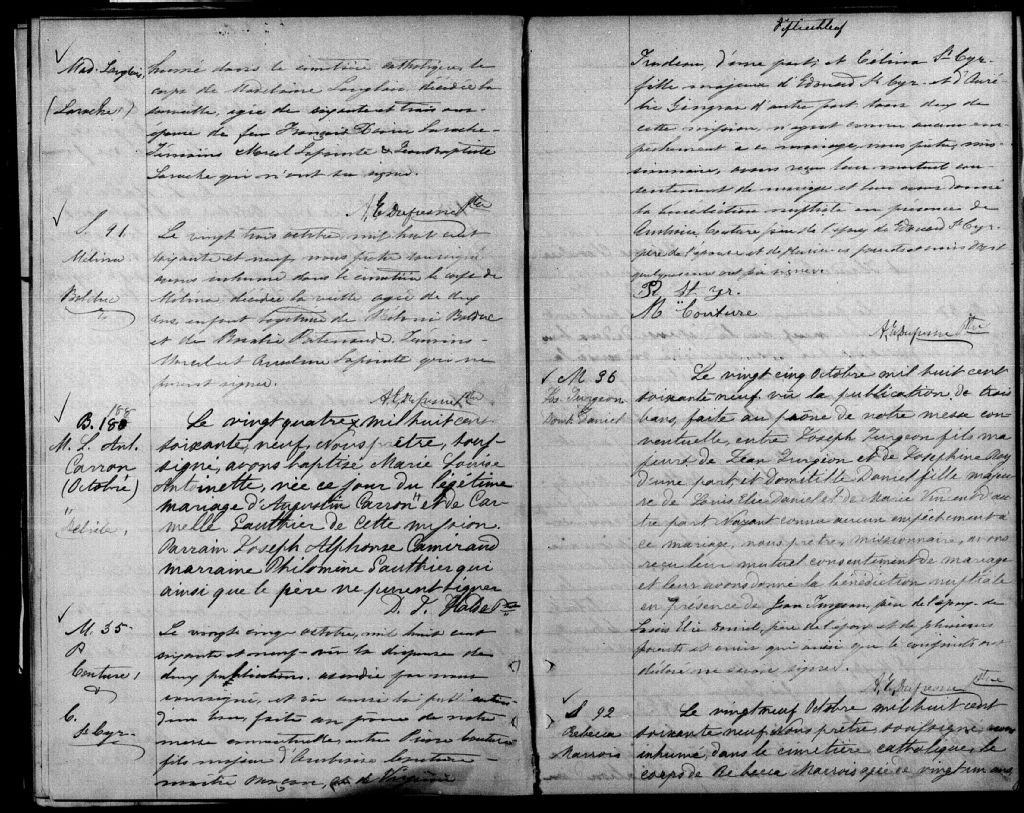 Mad. Langlois
(Laroche)
humé dans le cimetière catholique, le
corps de Madelaine Langlois, décédée la
surveille, agée de soixante et trois ans
épouse de feu François Laroche
Témoins Marcel Lapointe & Jean Baptiste
Laroche qui n'ont su signer.
A. E. Dufresne Ptre
S. 91
Melina
Bolduc
Le vingt trois octobre, mil huit cent
soixante et neuf, nous prêtre soussigné
avons inhumé dans le cimetière le corps de
Melina, décédée la veille agée de deux
ans, enfant légitime de Bolduc
et de Patenaude, Témoins
Marcel et Lapointe qui ne
peuvent signer.
A. E. Dufresne Ptre
188
B. 180
M. L. Ant.
Carron
(Octobre)
Le vingt quatre mil huit cent
soixante, neuf, Nous prêtre, sous-
signé, avons baptisé Marie Louise
Antoinette, née ce jour du légitime
mariage d'Augustin Carron et de Car-
melle Gauthier de cette mission.
Parrain Joseph Alphonse Camirand
marraine Philomine Gauthier qui
ainsi que le père ne purent signer
M. 35
P
Couture
&
C.
St Cyr
Le vingt cinq octobre, mil huit cent
soixante et neuf vu la dispense de
deux publications accordée par nous
soussigné, et vu aussi la publication
d'un ban, faite au prone de notre
messe conventuelle, entre Pierre Couture
fils majeur d'Ambroise Couture
Trudeau, d'une part; et Célina St Cyr
fille majeure d'Edouard St Cyr et d'Auré-
lie Gingras d'autre part tous deux de
cette mission, n'ayant connu aucun em-
pêchement à ce mariage, nous prêtre, mis-
sionnaire, avons reçu leur mutuel con-
sentement de mariage et leur avons donné
la bénédiction nuptiale en présence de
Ambroise Couture père de l'époux, de Edouard St Cyr
père de l'épouse et de plusieurs parents et amis dont
quelques uns ont pu signer
St. yr.
M Couture
A. E. Dufresne Ptre
M 36
Jos. Turgeon
Domt. Daniel
Le vingt cinq Octobre mil huit cent
soixante neuf vu la publication, de trois
bans, faite au prône de notre messe con
ventuelle, entre Joseph Turgeon fils ma
jeur de Jean Turgeon et de Josephine Roy
d'une part et Domitille Daniel fille majeu
re de Louis Elie Daniel et de Marie Vincent d'au
tre part N'ayant connu aucun empêchement à
ce mariage, nous prêtre, missionnaire, avons
reçu leur mutuel consentement de mariage
et leur avons donné la bénédiction nuptiale
en présence de Jean Turgeon, père de l'époux, de
Louis Elie Daniel, père de l'épouse et de plusieurs
parents et amis qui ainsi que le conjoints ont
déclaré ne savoir signer.
A. E. Dufresne Ptre
S 92
Rebecca
Marrois
Le vingt neuf Octobre mil huit cent
soixante neuf Nous prêtre, soussigné, avons
inhumé, dans le cimetière catholique, le
corps de Rebecca Marrois agée de vingt un ans